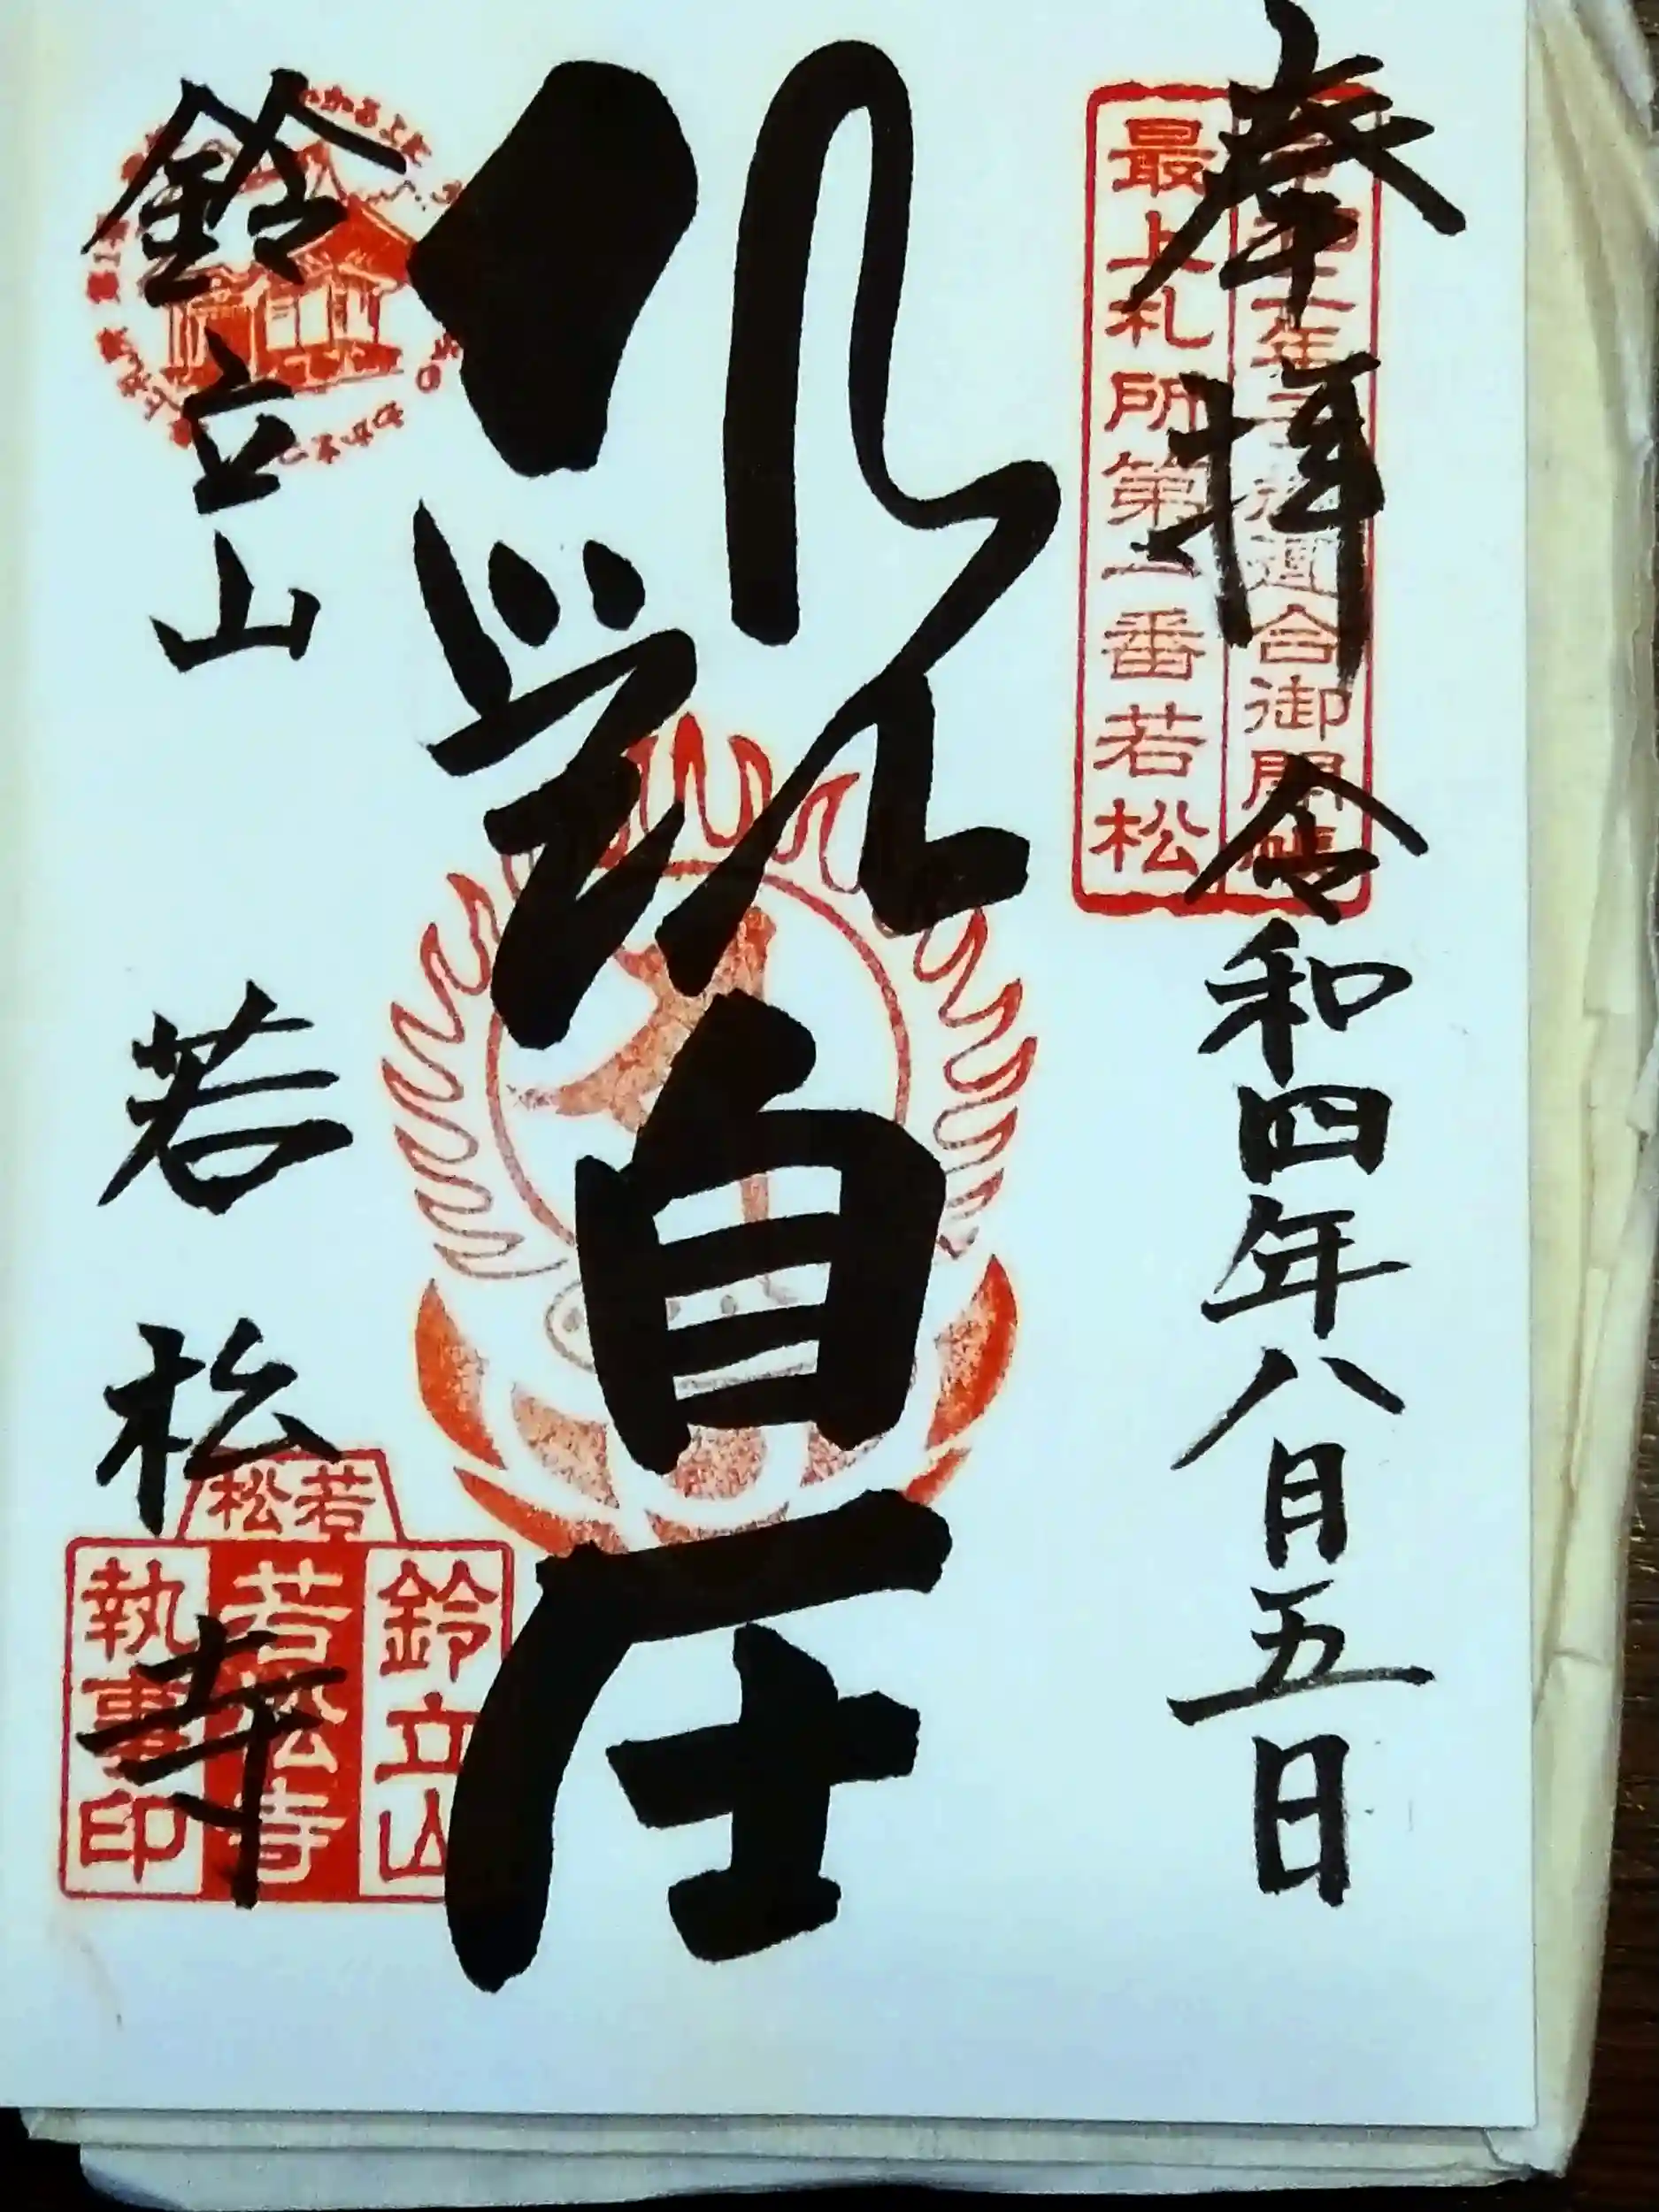 奉拝
令和四年八月五日
子年連合御開帳
最上札所第一番若松
観自在
鈴立山
若松寺
若松
鈴立山
若松寺
執事印